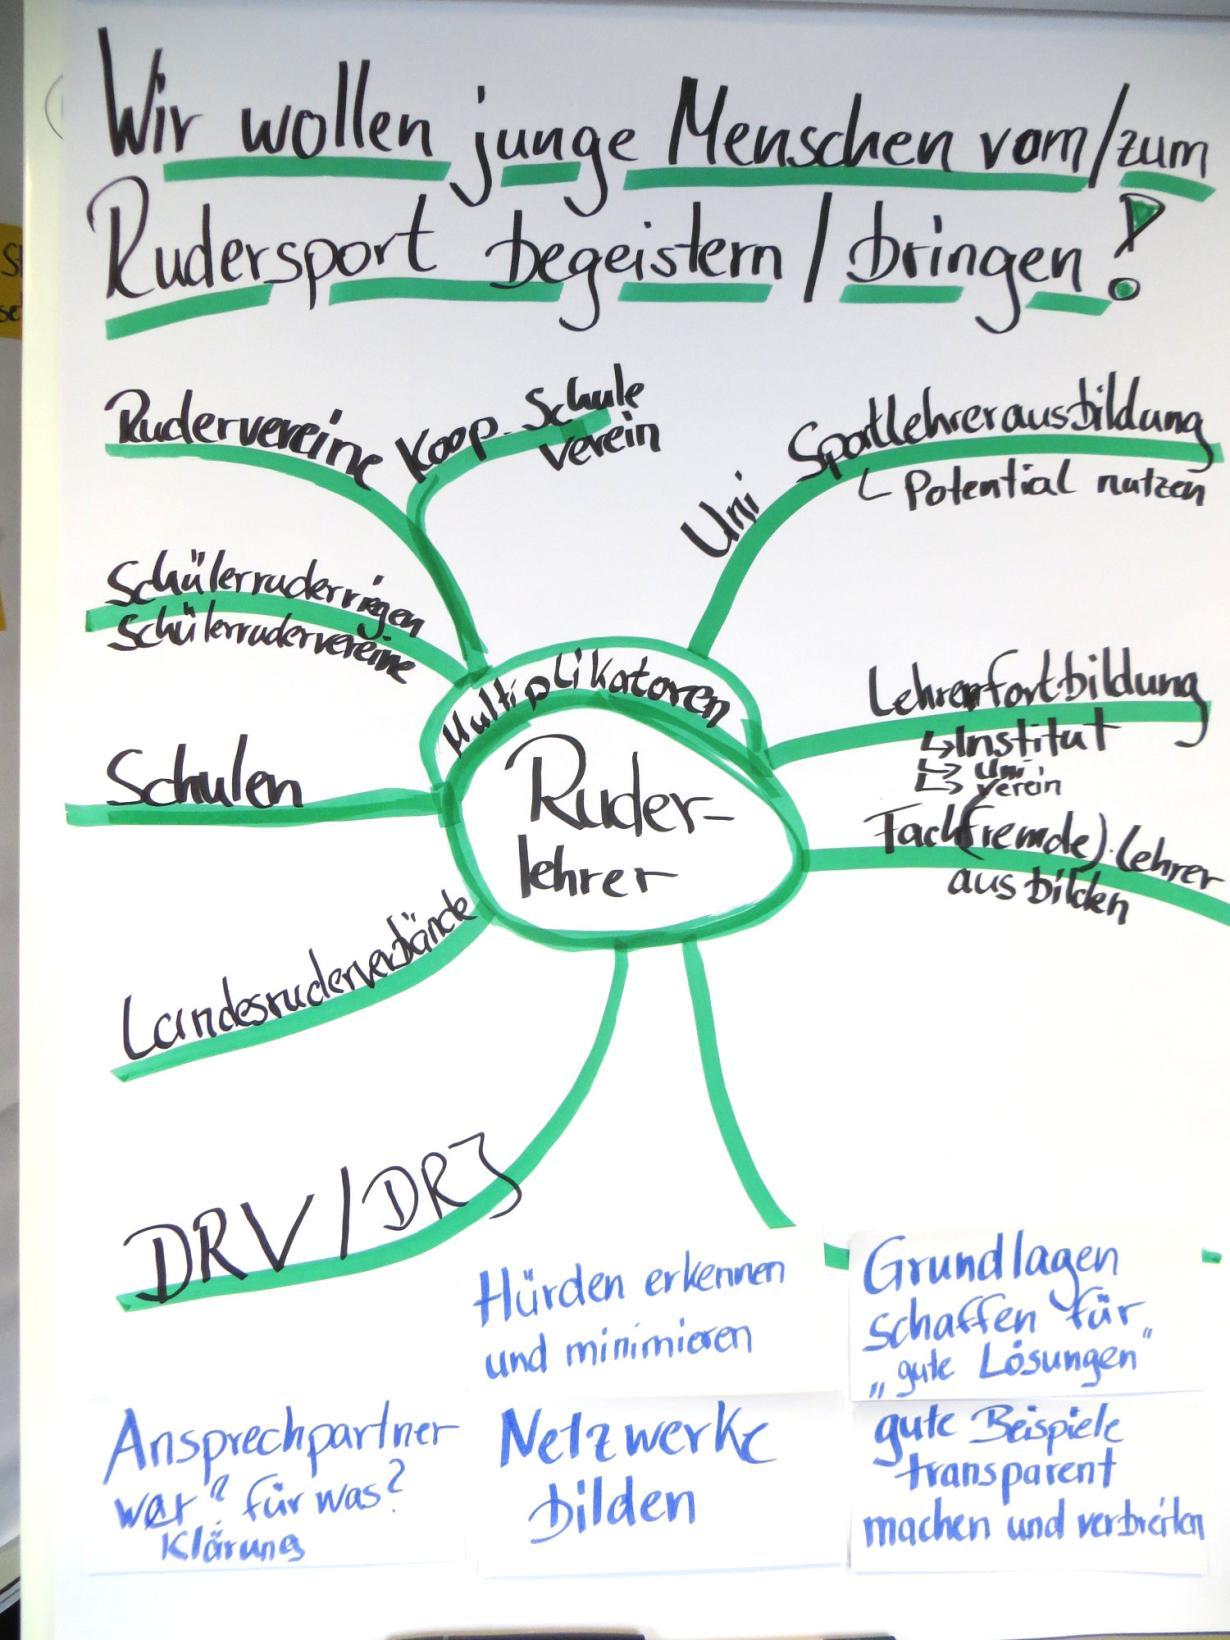 Wir wollen junge Menschen vom/zum
Rudersport begeistern / bringen!
Rudervereine
Koop. Schule
Verein
Uni
Sportlehrerausbildung
Potential nutzen
Schülerruderriegen
Schülerrudervereine
Multiplikatoren
Ruder-
lehrer
Lehrerfortbildung
Institut
Uni
Verein
Schulen
Fach(fremde).Lehrer
ausbilden
Landesruderverbände
DRV / DRJ
Hürden erkennen
und minimieren
Grundlagen
schaffen für
„gute Lösungen"
Ansprechpartner
wer? für was?
Klärung
Netzwerke
bilden
gute Beispiele
transparent
machen und verbreiten